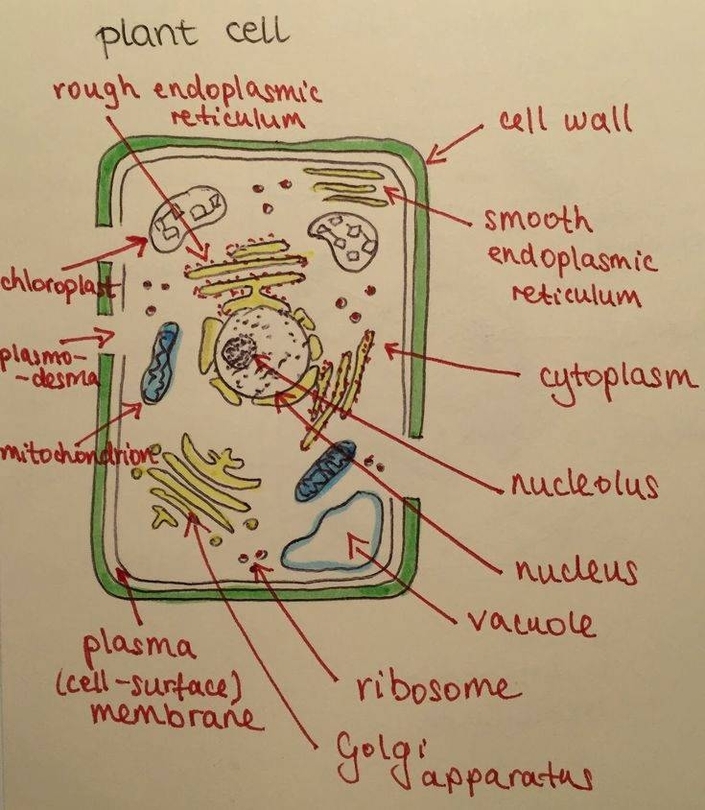 plant cell
rough endoplasmic
reticulum
cell wall
smooth
endoplasmic
reticulum
chloroplast
plasmo-
-desma
cytoplasm
mitochondrion
nucleolus
nucleus
vacuole
plasma
(cell-surface)
membrane
ribosome
Golgi
apparatus